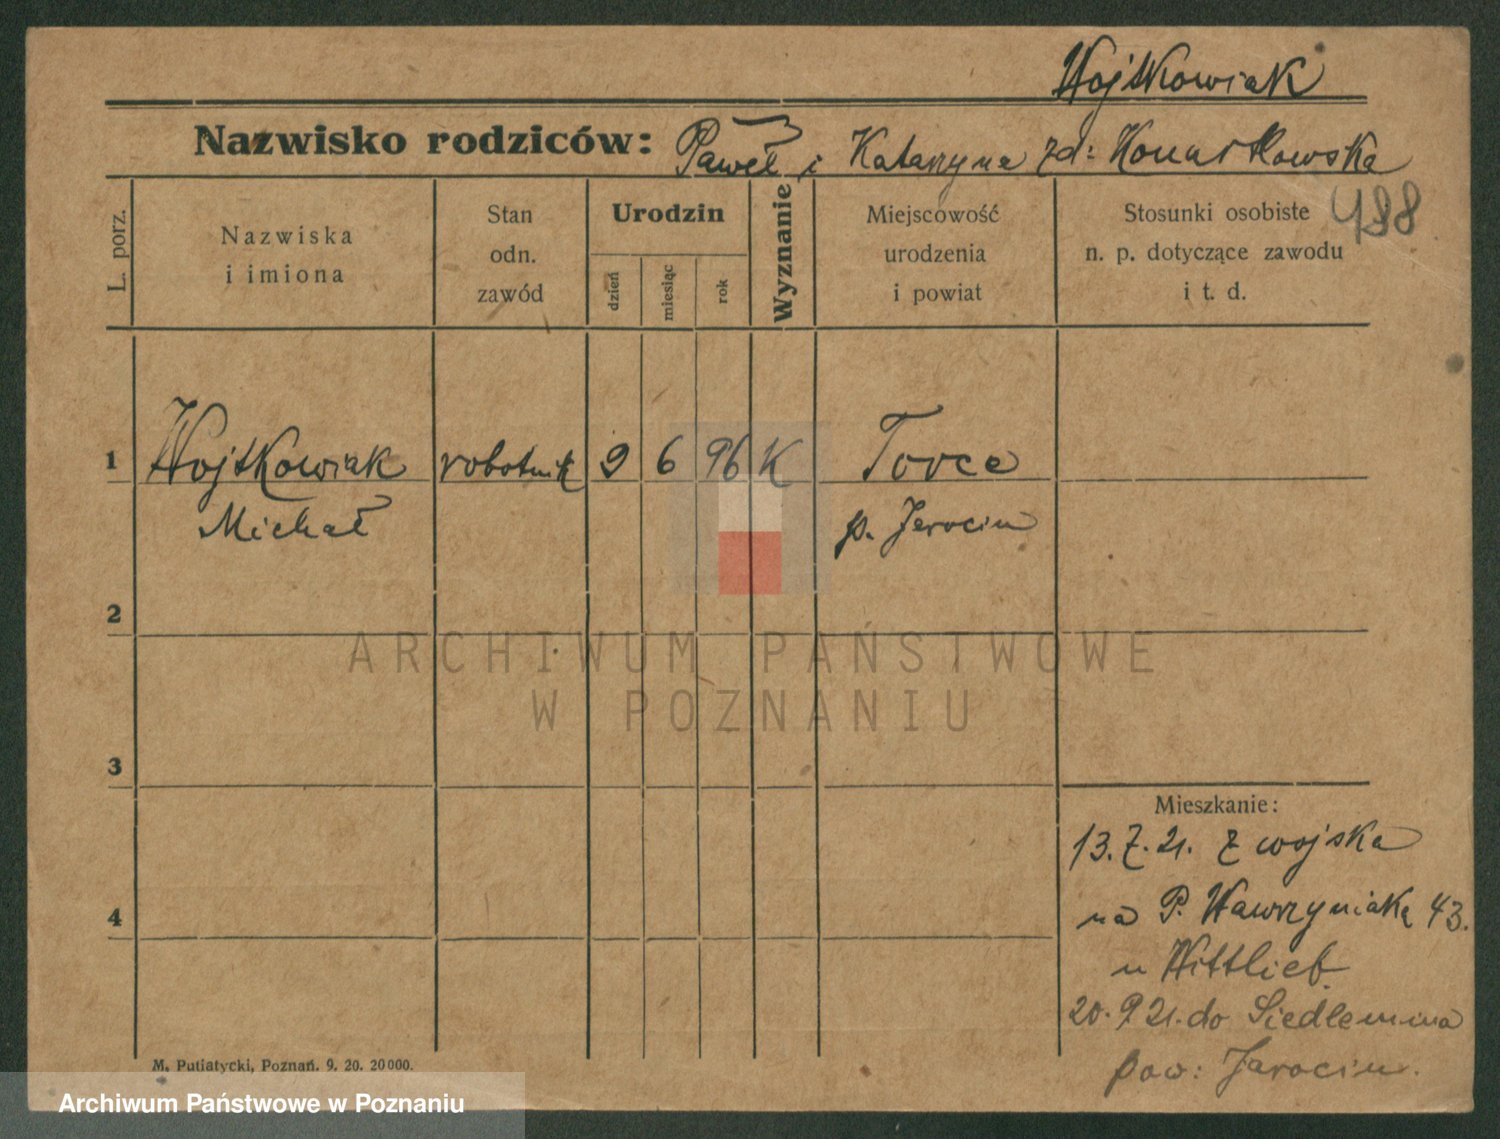 Wojtkowiak
Nazwisko rodziców: Paweł i Katarzyna zd:
498
L. porz.
Nazwiska
i imiona
Stan
odn.
zawód
Urodzin
dzień
miesiąc
rok
Wyznanie
Miejscowość
urodzenia
i powiat
Stosunki osobiste
n. p. dotyczące zawodu
i t. d.
1 Wojtkowiak robotnik 9 6 96 K Torce
Michał p. Jarocin
2
ARCHIWUM PAŃSTWOWE
W POZNANIU
3
Mieszkanie:
13.7.21. z wojska
na P. Wawrzyniaka 43.
u Wittlieb
4
20.9.21. do Siedlemina
pow: Jarocin.
M. Putiatycki, Poznań. 9. 20. 20000.
Archiwum Państwowe w Poznaniu